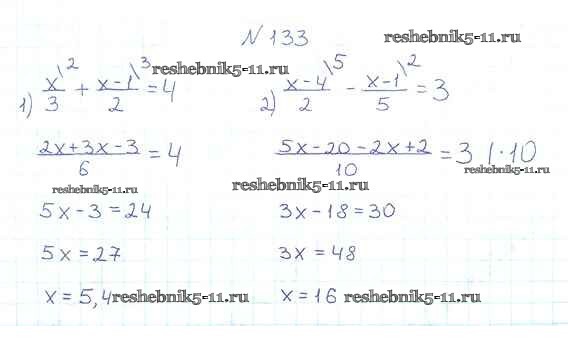 N 133 reshebnik5-11.ru
1) x/3 \2 + x-1/2 \3 = 4 reshebnik5-11.ru
2) x-4/2 \5 - x-1/5 \2 = 3
2x+3x-3/6 = 4
5x-20-2x+2/10 = 3 | · 10
reshebnik5-11.ru reshebnik5-11.ru reshebnik5-11.ru
5x-3=24 3x-18=30
5x=27 3x=48
x=5,4 reshebnik5-11.ru x=16 reshebnik5-11.ru